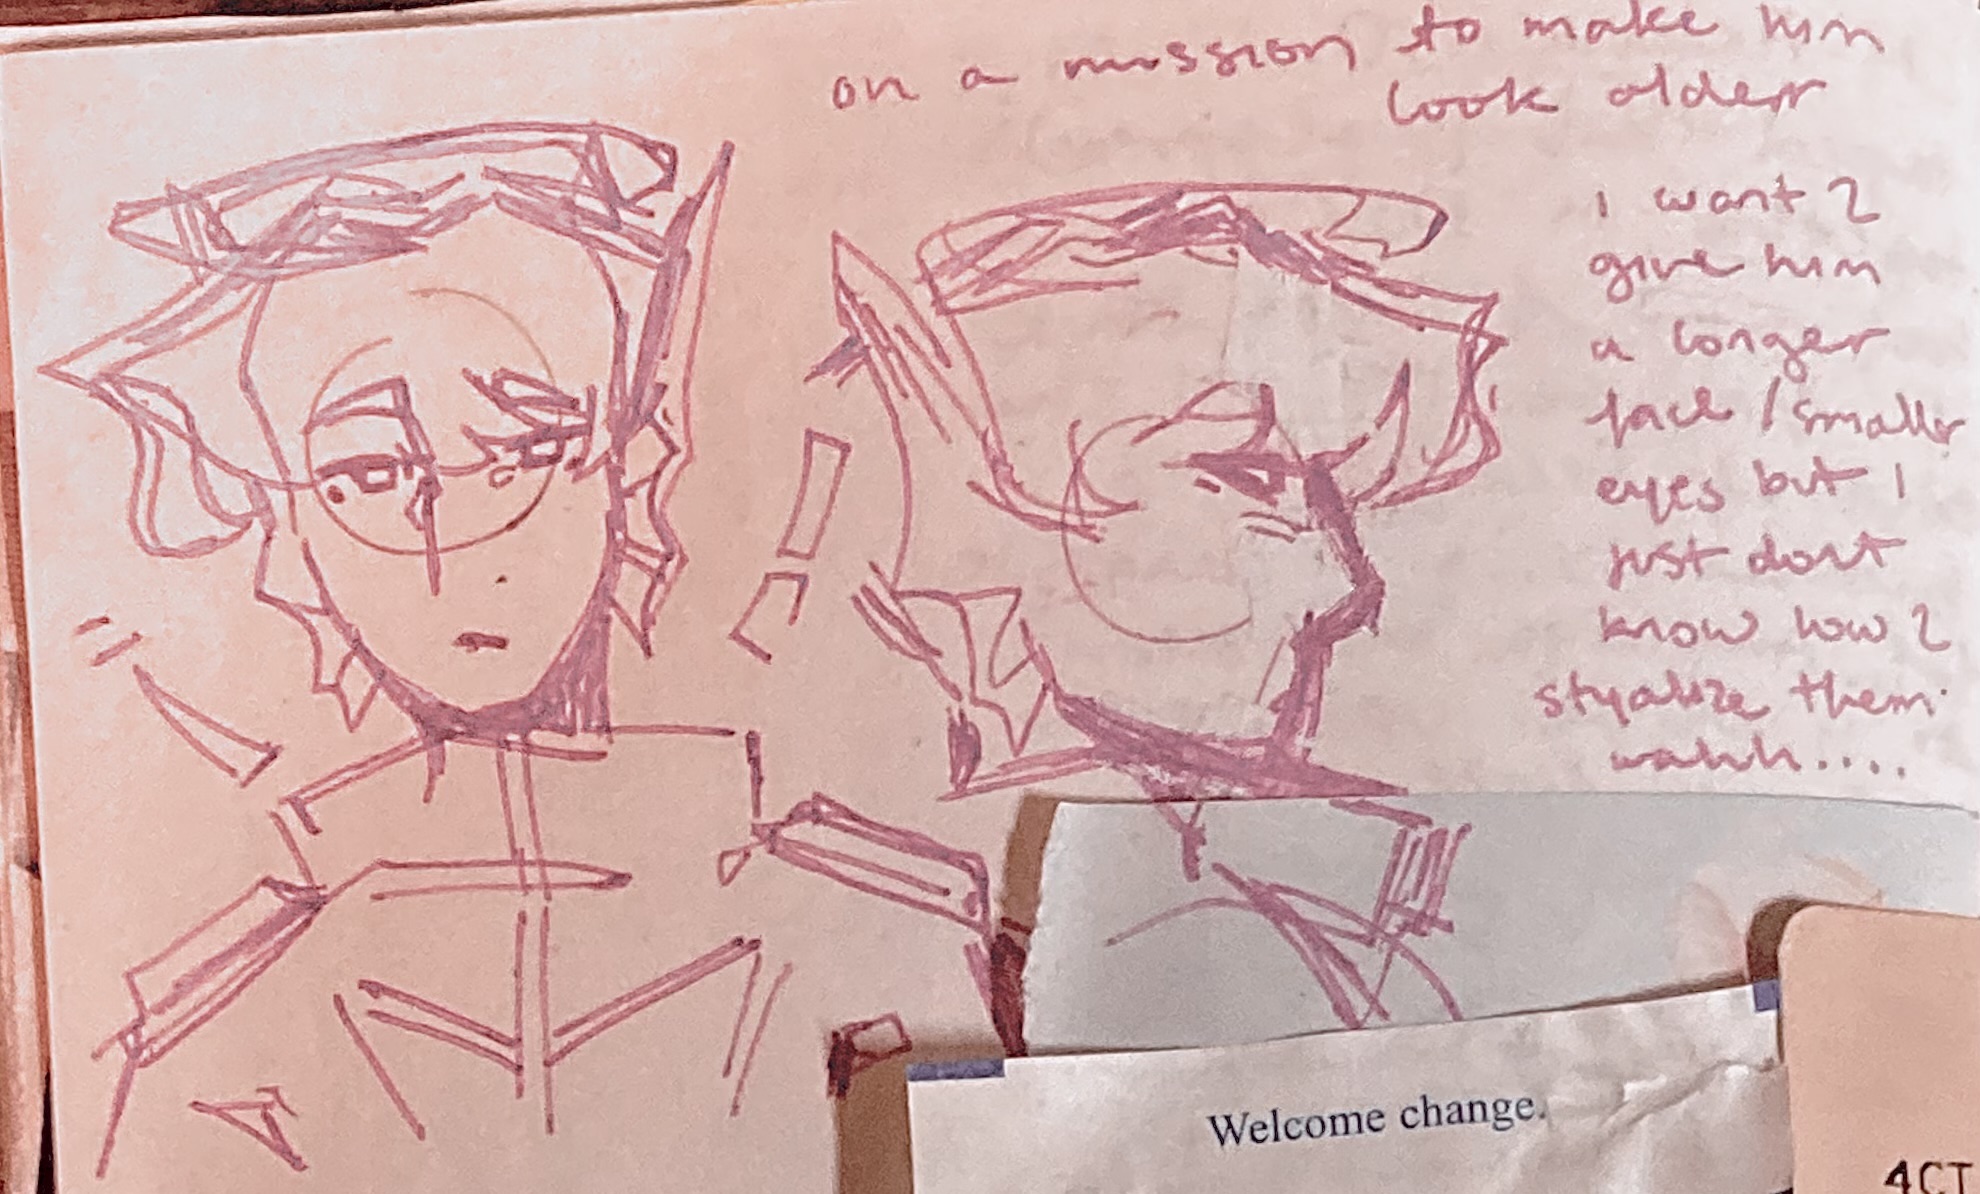 on a mission to make him
look olderr
i want 2
give him
a longer
face / smaller
eyes but i
just dont
know how 2
styalize them
wahh....
Welcome change.
4CT